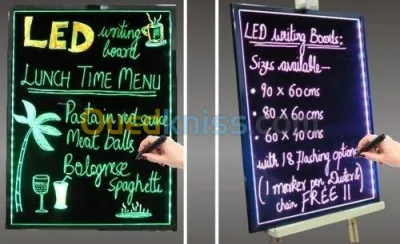 LED
writing
board
LUNCH TIME MENU
Pasta in red sauce
Meat balls
Bolognese
Spaghetti
LED writing Boards:
Sizes available—
• 90 x 60 cms
• 80 x 60 cms
• 60 x 40 cms
with 18 flashing options
(1 marker pen, Duster &
chain FREE !!)
Ouedkniss.com